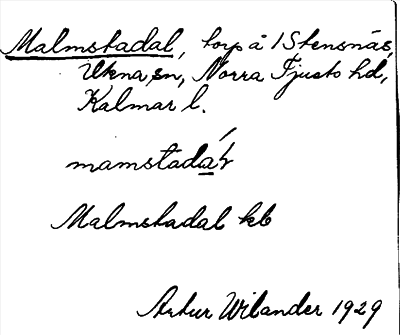 Malmstadal, torp å 1 Stensnäs,
Ukna sn, Norra Tjusto hd,
Kalmar l.
Malmstadal kb
Artur Wilander 1929